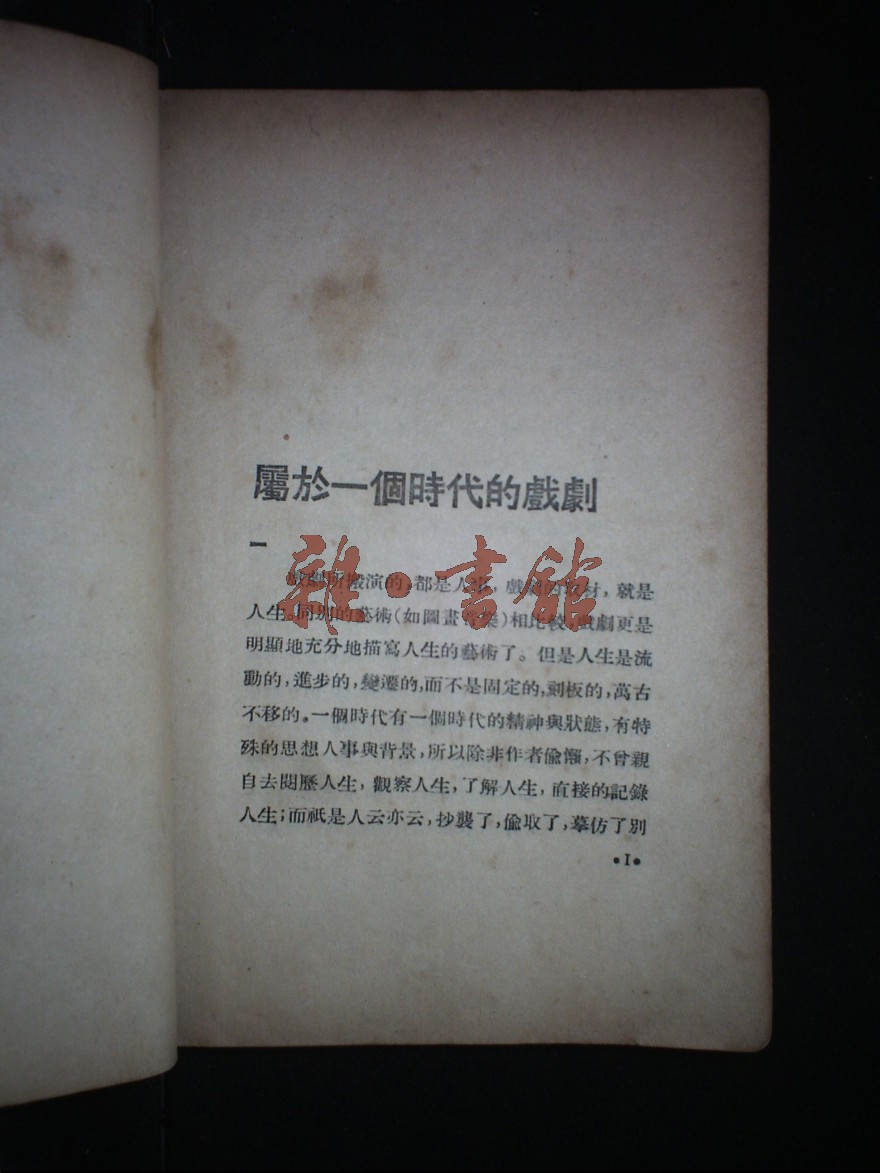 屬於一個時代的戲劇
一
戲劇所搬演的,都是人事,戲劇的取材,就是
人生。同別的藝術(如圖畫音樂)相比較,戲劇更是
明顯地充分地描寫人生的藝術了。但是人生是流
動的,進步的,變遷的,而不是固定的,刻板的,萬古
不移的。一個時代有一個時代的精神與狀態,有特
殊的思想人事與背景,所以除非作者偷懶,不曾親
自去閱歷人生,觀察人生,了解人生,直接的記錄
人生;而祇是人云亦云,抄襲了,偷取了,摹仿了別
•I•
雜•書館